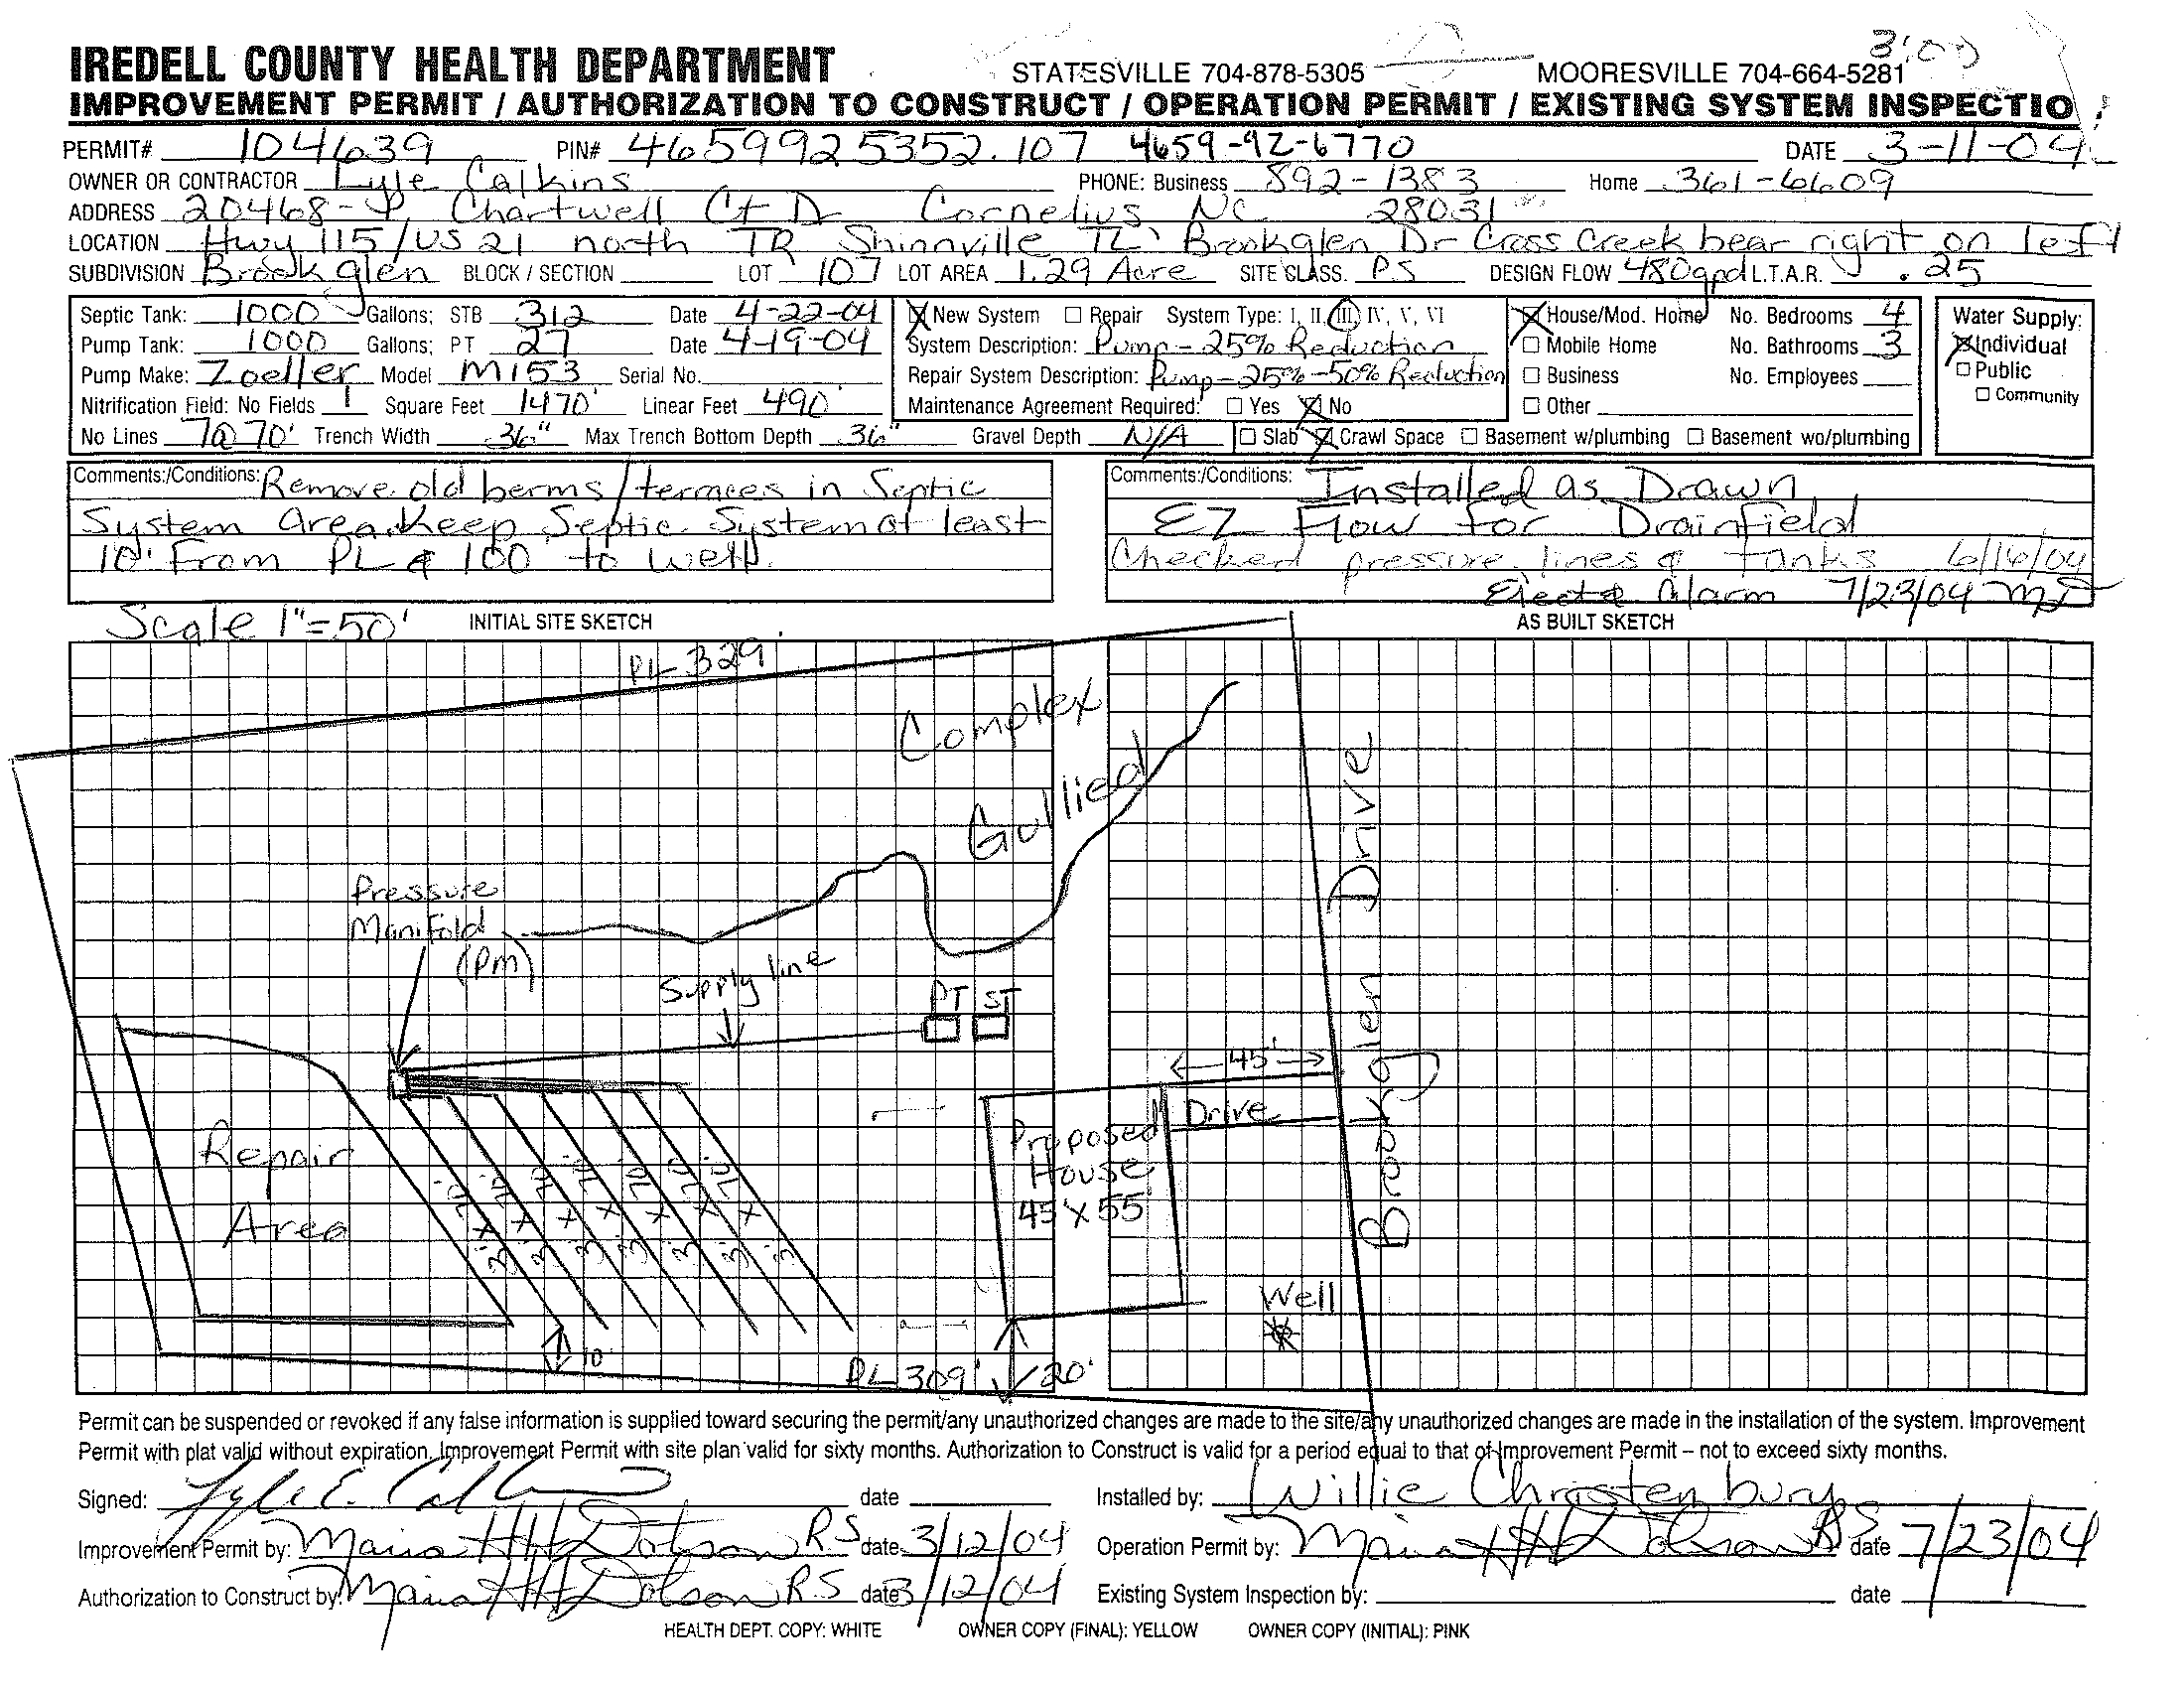 3:00
IREDELL COUNTY HEALTH DEPARTMENT STATESVILLE 704-878-5305 MOORESVILLE 704-664-5281
IMPROVEMENT PERMIT / AUTHORIZATION TO CONSTRUCT / OPERATION PERMIT / EXISTING SYSTEM INSPECTIO
PERMIT# 104639 PIN# 4659925352.107 4659-92-6770 DATE 3-11-04
OWNER OR CONTRACTOR Lyle Calkins PHONE: Business 892-1383 Home 361-6609
ADDRESS 20468- Chartwell Ct Dr Cornelius NC 28031
LOCATION Hwy 115/US 21 north TR Shinnville TL Brookglen Dr Cross Creek bear right on left
SUBDIVISION Brookglen BLOCK / SECTION LOT 107 LOT AREA 1.29 Acre SITE CLASS. PS DESIGN FLOW 480gpd L.T.A.R. .25
Septic Tank: 1000 Gallons; STB 312 Date 4-22-04 New System Repair System Type: I, II, III, IV, V, VI House/Mod. Home No. Bedrooms 4 Water Supply:
Pump Tank: 1000 Gallons; PT 27 Date 4-19-04 System Description: Pump-25% Reduction Mobile Home No. Bathrooms 3 Individual
Pump Make: Zoeller Model M153 Serial No. Repair System Description: Pump-25%-50% Reduction Business No. Employees Public
Nitrification Field: No Fields 1 Square Feet 1470' Linear Feet 490' Maintenance Agreement Required: Yes No Other Community
No Lines 7@70' Trench Width 36" Max Trench Bottom Depth 36" Gravel Depth N/A Slab Crawl Space Basement w/plumbing Basement wo/plumbing
Comments:/Conditions: Remove old berms/terraces in Septic
System Area. Keep Septic System at least
10' From PL & 100' to Well.
Comments:/Conditions: Installed as Drawn
EZ Flow for Drainfield
Checked pressure, lines & tanks 6/16/04
Elect & Alarm 7/23/04 MD
Scale 1"=50' INITIAL SITE SKETCH AS BUILT SKETCH
PL 329'
Complex
Gullied
Pressure
Manifold
(PM)
Supply line
PT ST
Brookglen Drive
45'
Drive
Proposed
House
45'X55'
Repair
Area
3' X 70'
3' X 70'
3' X 70'
3' X 70'
3' X 70'
3' X 70'
3' X 70'
Well
10'
PL 309' 20'
Permit can be suspended or revoked if any false information is supplied toward securing the permit/any unauthorized changes are made to the site/any unauthorized changes are made in the installation of the system. Improvement
Permit with plat valid without expiration. Improvement Permit with site plan valid for sixty months. Authorization to Construct is valid for a period equal to that of Improvement Permit – not to exceed sixty months.
Signed: Lyle E. Calkins date Installed by: Willie Christenbury
Improvement Permit by: Maria H Dotson RS date 3/12/04 Operation Permit by: Maria H Dotson RS date 7/23/04
Authorization to Construct by: Maria H Dotson RS date 3/12/04 Existing System Inspection by: date
HEALTH DEPT. COPY: WHITE OWNER COPY (FINAL): YELLOW OWNER COPY (INITIAL): PINK